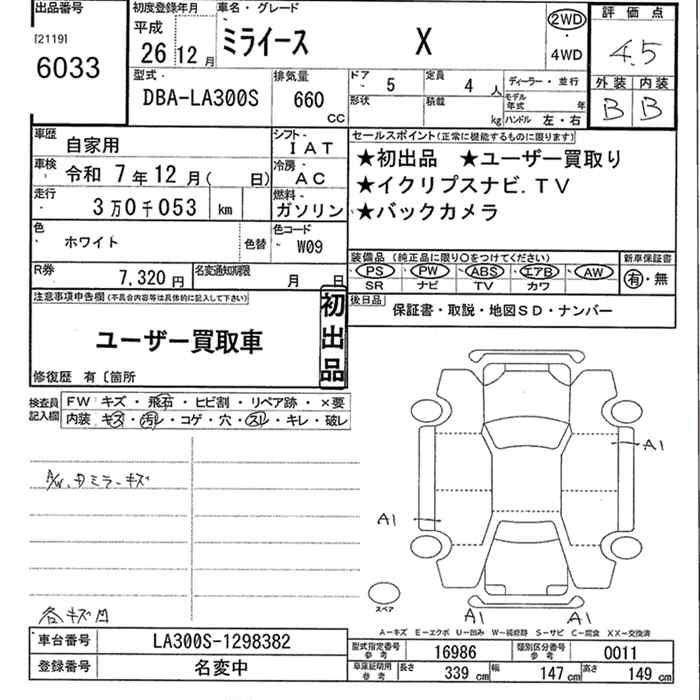 出品番号
[2119]
6033
初度登録年月
平成
26 12 月
車名・グレード
ミライース X
2WD
・
4WD
評価点
4.5
外装 内装
B B
型式
DBA-LA300S
排気量
660
CC
ドア 5
定員 4 人
形状
積載 kg
ディーラー・並行
モデル年式 年
ハンドル 左・右
車歴 自家用
シフト IAT
車検 令和 7 年 12 月( 日)
冷房 AC
走行 3万0千053 km
燃料 ガソリン
色 ホワイト 色替
色コード W09
R券 7,320 円
名変通知期限 月 日
セールスポイント(正常に機能するものに限ります)
★初出品 ★ユーザー買取り
★イクリプスナビ.TV
★バックカメラ
装備品 (純正品に限り○をつけてください)
PS PW ABS エアB AW
SR ナビ TV カワ
新車保証書
有・無
後日品
保証書・取説・地図SD・ナンバー
注意事項申告欄(不具合内容等は具体的に記入して下さい)
ユーザー買取車
初出品
修復歴 有〔箇所
検査員記入欄
FW キズ・飛石・ヒビ割・リペア跡・×要
内装 キズ・汚レ・コゲ・穴・スレ・キレ・破レ
A/W、
ミラーキズ
各キズ凹
A1
A1
A1
A1
スペア
A-キズ E-エクボ U-凹み W-補修跡 S-サビ C-腐食 XX-交換済
車台番号 LA300S-1298382
登録番号 名変中
型式指定番号 参考 16986
類別区分番号 参考 0011
車庫証明用 参考 長さ 339 cm 幅 147 cm 高さ 149 cm